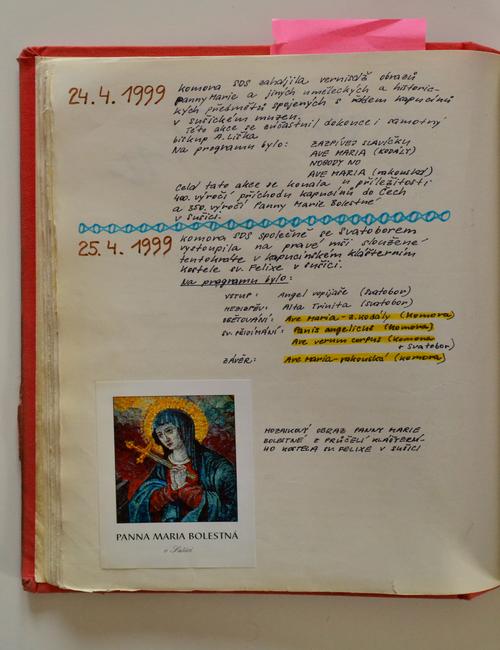 24.4.1999
Komora SDS zahájila vernisáž obrazů
Panny Marie a jiných uměleckých a historic-
kých předmětů spojených s řádem kapucínů
v sušickém muzeu.
Této akce se účastnil dokonce i samotný
biskup A. Liška
Na programu bylo: ZAZPÍVEJ SLAVÍČKU
AVE MARIA (KODÁLY)
NOBODY NO
AVE MARIA (rakouská)
Celá tato akce se konala u příležitosti
400. výročí příchodu kapucínů do Čech
a 350. výročí Panny Marie Bolestné
v Sušici.
25.4.1999
Komora SDS společně se Svatoborem
vystoupila na pravé mši sloužené
tentokráte v kapucínském klášterním
kostele sv. Felixe v Sušici.
Na programu bylo:
VSTUP: Angel (Svatobor)
MEZIZPĚV: Alta Trinita (Svatobor)
OBĚTOVÁNÍ: Ave Maria - Z. Kodály (Komora)
SV. PŘIJÍMÁNÍ: Panis angelicus (Komora)
Ave verum corpus (Komora
+ Svatobor)
ZÁVĚR: Ave Maria - rakouská (Komora)
MOZAIKOVÝ OBRAZ PANNY MARIE
BOLESTNÉ Z PRŮČELÍ KLÁŠTERNÍ-
HO KOSTELA SV. FELIXE V SUŠICI
PANNA MARIA BOLESTNÁ
v Sušici